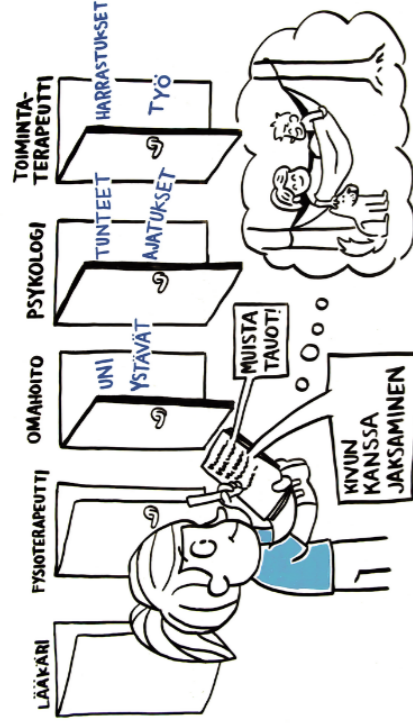 LÄÄKÄRI
FYSIOTERAPEUTTI
OMAHOITO
UNI
YSTÄVÄT
PSYKOLOGI
TUNTEET
AJATUKSET
TOIMINTA-
TERAPEUTTI
HARRASTUKSET
TYÖ
MUISTA
TAUOT!
KIVUN
KANSSA
JAKSAMINEN